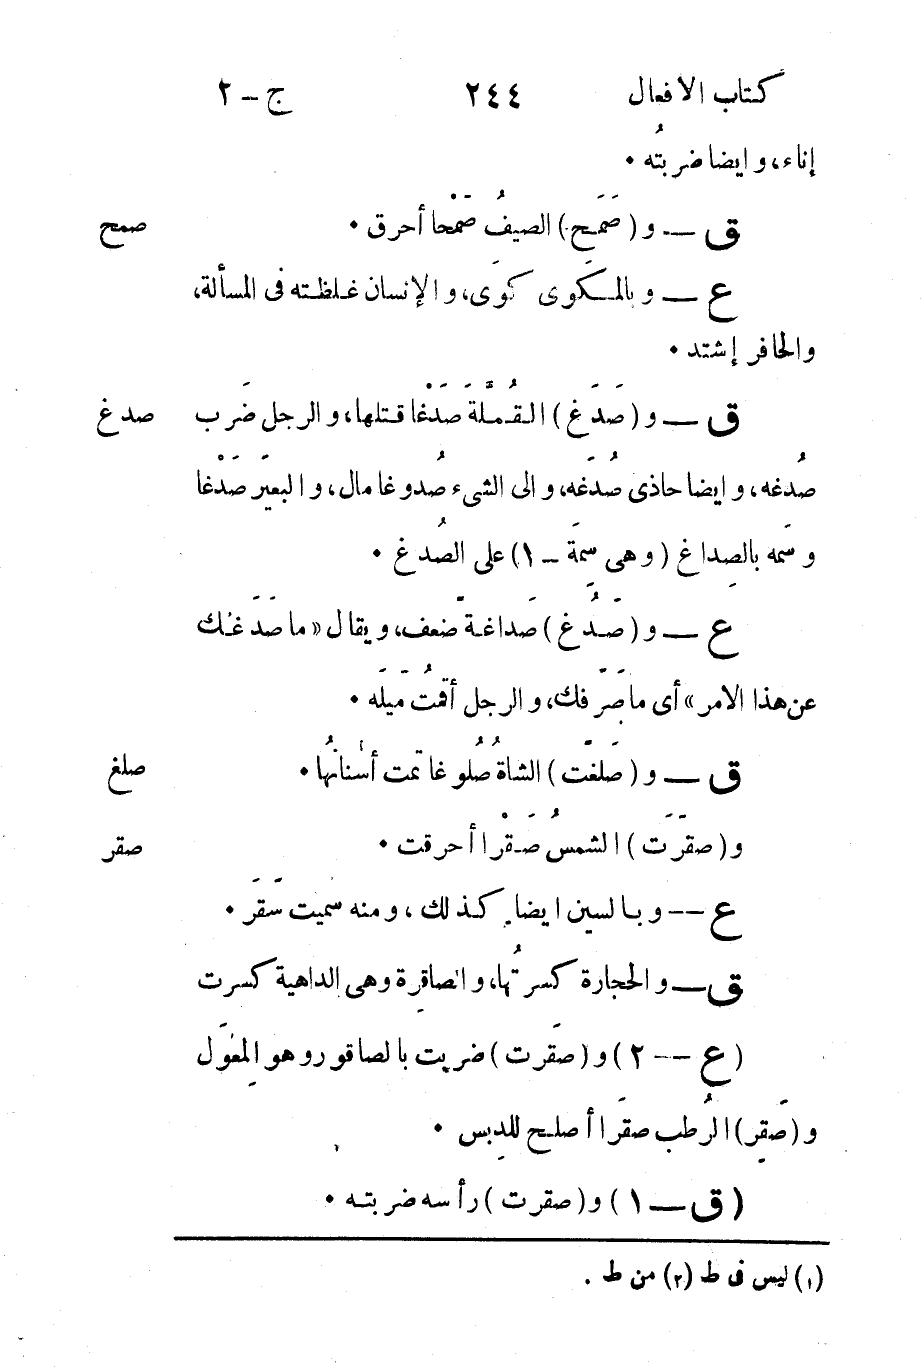 كتاب الافعال ٢٤٤ ج – ٢
إناء، و ايضا ضربتُه ٠
ق — و (صَمَح) الصيفُ صَمْحا أحرق ٠ صمح
ع — و بالمكوى كوَى، و الإنسان غلظته فى المسألة،
والحافر إشتد ٠
ق — و (صَدَغ) القُملَة صَدْغا قتلها، و الرجل ضَرب صدغ
صُدغه، و ايضا حاذى صُدغَه، و الى الشىء صُدوغا مال، و البعيرَ صَدْغا
وسَمه بالصِداغ (وهى سِمَة – ١) على الصُدغ ٠
ع — و (صَدُغ) صَداغة ضَعف، و يقال «ما صَدَغك
عن هذا الامر» أى ما صَرَفك، و الرجل أقمتُ مَيلَه ٠
ق — و (صَلَغت) الشاةُ صُلُوغا تمت أسنانُها ٠ صلغ
و (صقَرَت) الشمسُ صَقْرا أحرقت ٠ صقر
ع –– و بالسين ايضا كذلك، و منه سميت سَقَر ٠
ق — و الحجارة كسرتُها، و الصاقِرة وهى الداهية كسرت
(ع –– ٢) و (صقَرت) ضربت بالصاقور و هو المِعْوَل
و (صَقِر) الرُطب صقَرا أصلح للدِبس ٠
(ق — ١) و (صقرت) رأسه ضربته ٠
(١) ليس فى ط (٢) من ط .